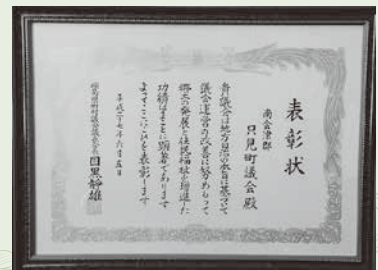 表彰状
南会津郡
只見町議会殿
貴議会は地方自治の本旨に基づいて
議会運営の改善に努めもって
郷土の発展と住民福祉を増進した
功績はまことに顕著であります
よってここにこれを表彰します
平成二十七年六月五日
福島県町村議会議長会会長 目黒靜雄